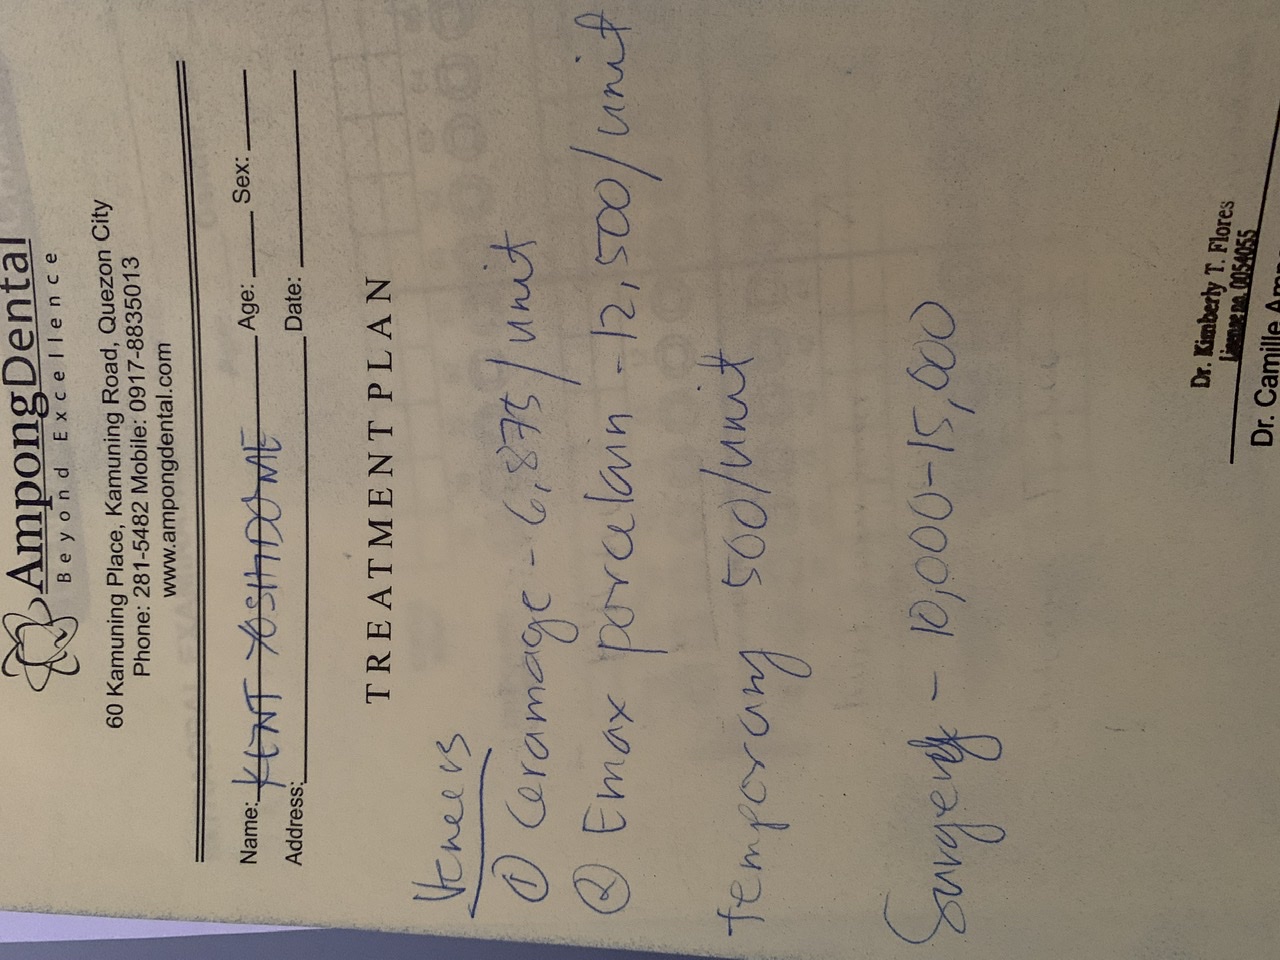 AmpongDental
Beyond Excellence
60 Kamuning Place, Kamuning Road, Quezon City
Phone: 281-5482 Mobile: 0917-8835013
www.ampongdental.com
Name: KENT YOSHIDOME Age: Sex:
Address: Date:
TREATMENT PLAN
Veneers
① Ceramage - 6,875/unit
② Emax porcelain - 12,500/unit
temporary 500/unit
Surgery - 10,000-15,000
Dr. Kimberly T. Flores
License no. 0054055
Dr. Camille